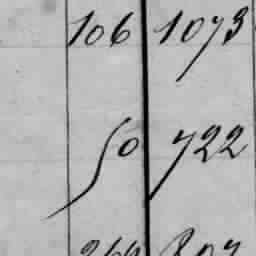 106 1073
50 722